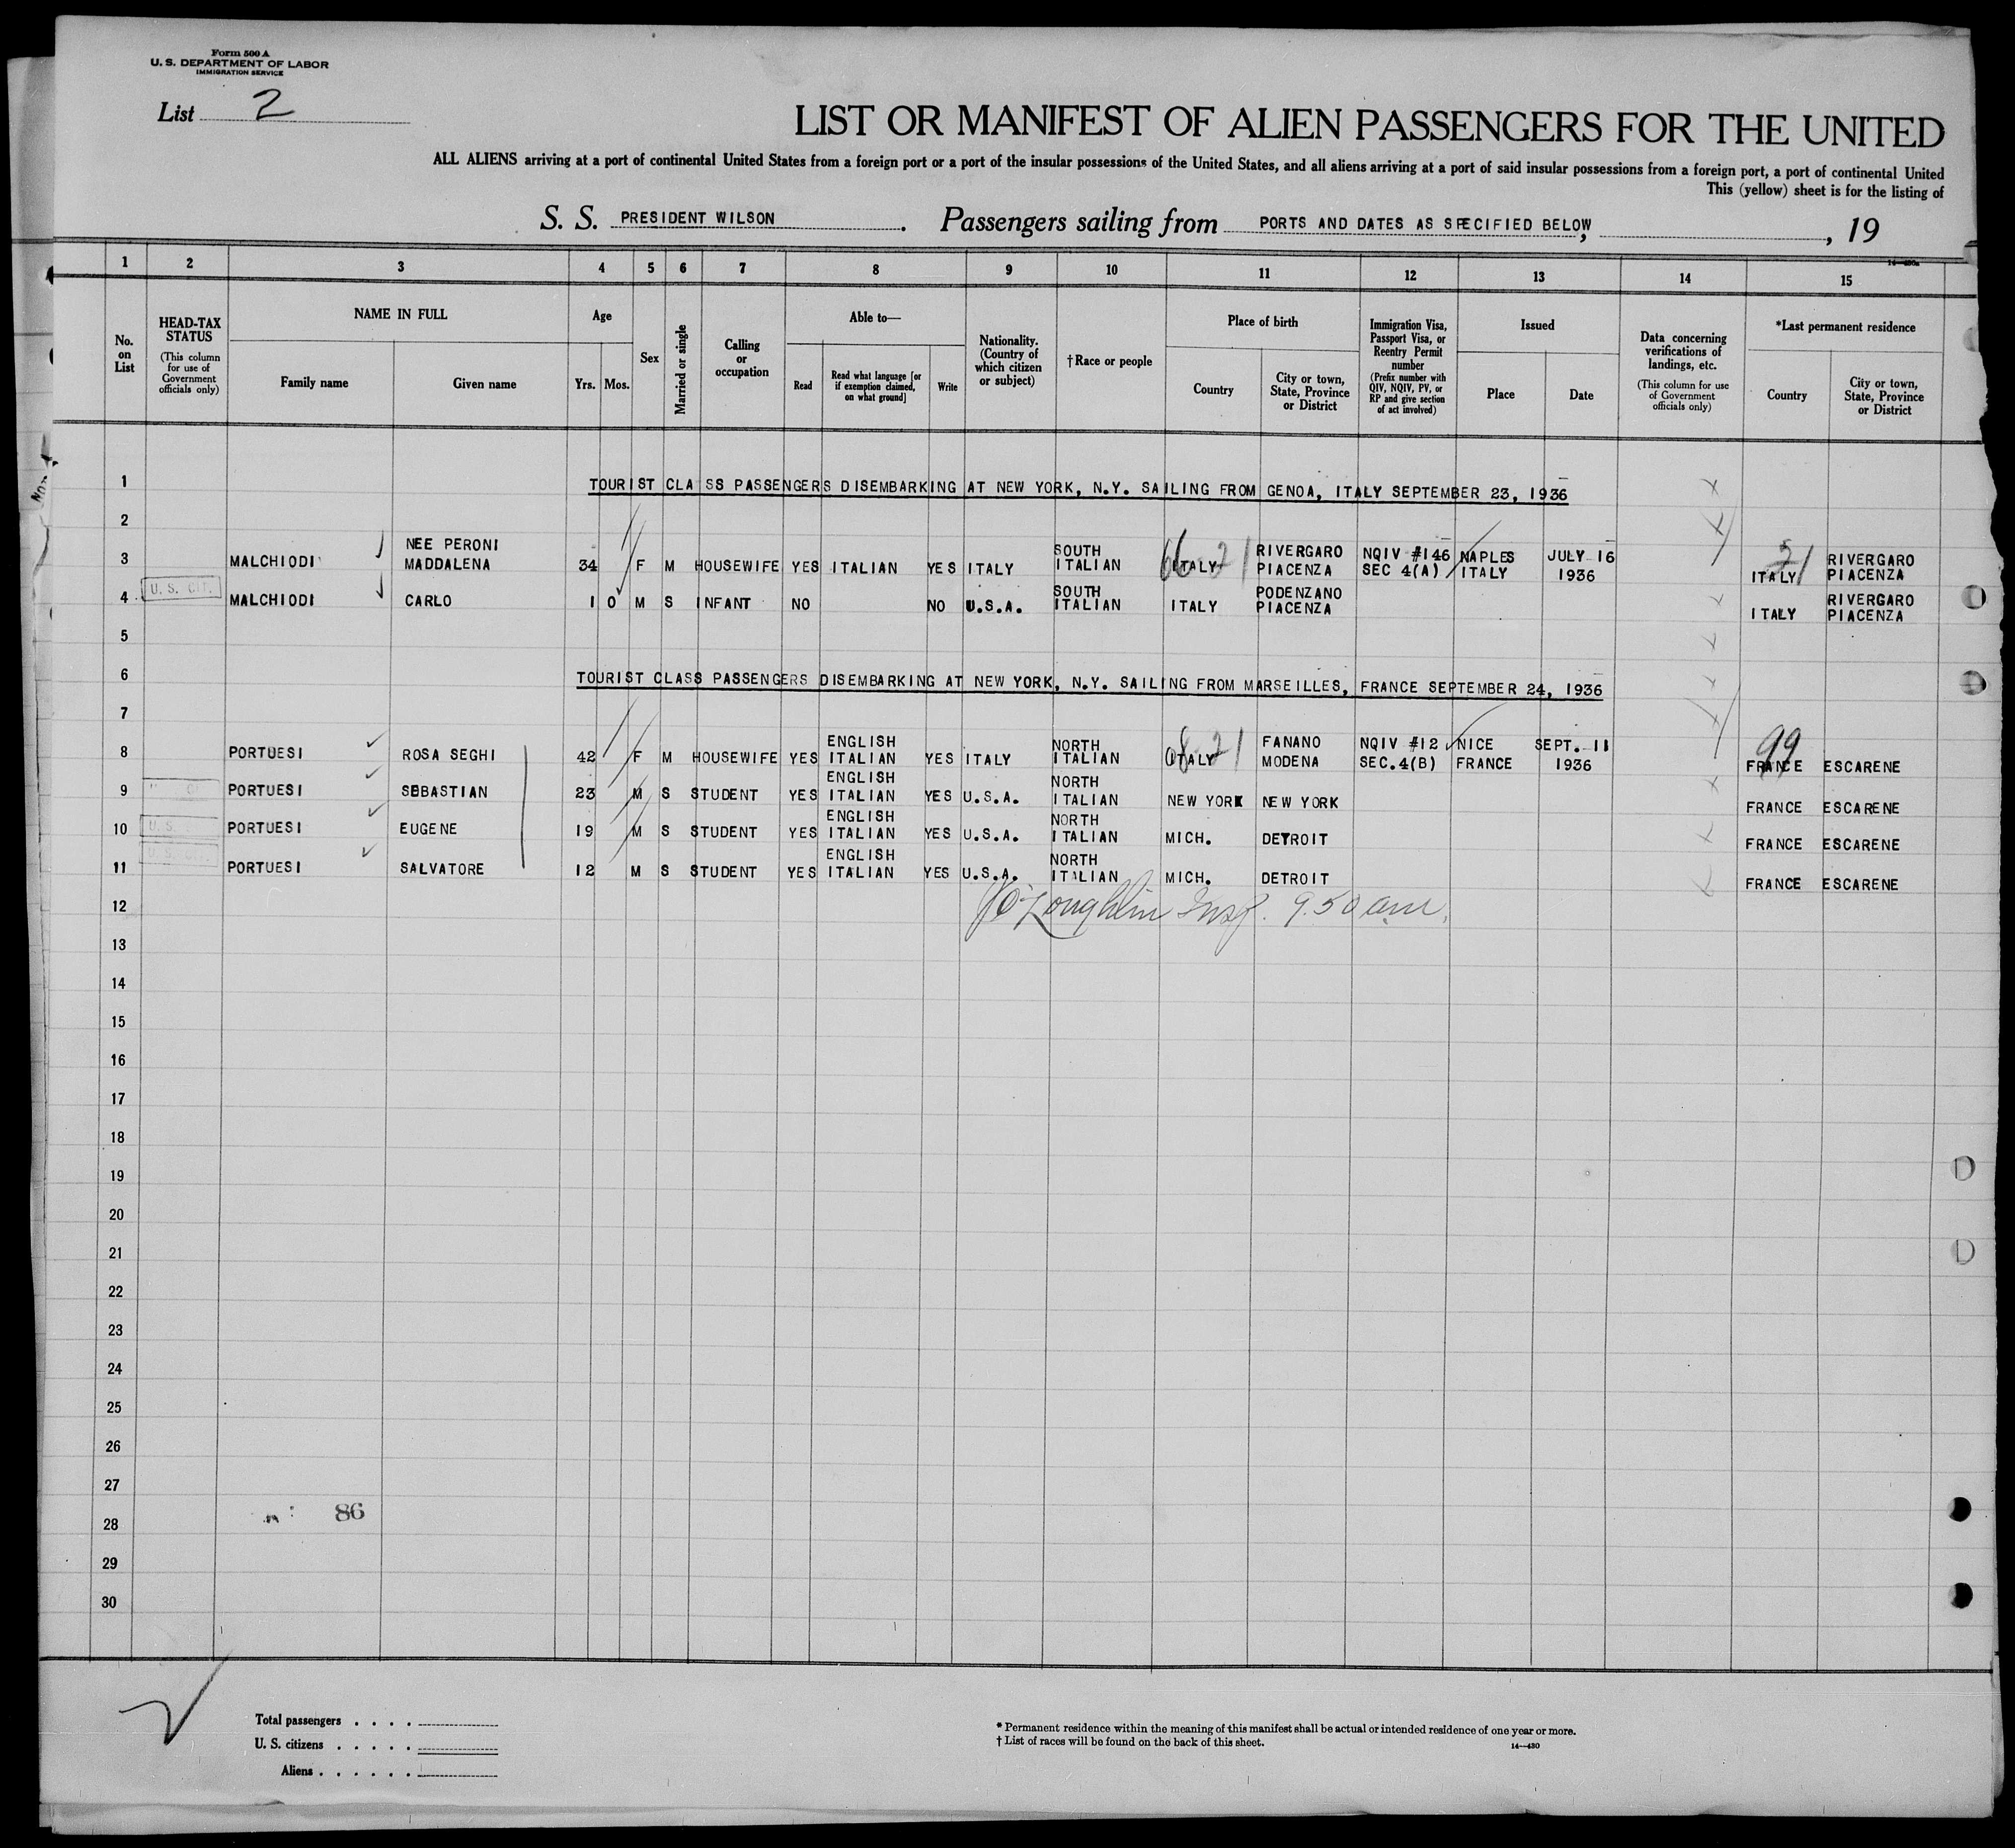 Form 500 A
U. S. DEPARTMENT OF LABOR
IMMIGRATION SERVICE
List 2
LIST OR MANIFEST OF ALIEN PASSENGERS FOR THE UNITED
ALL ALIENS arriving at a port of continental United States from a foreign port or a port of the insular possessions of the United States, and all aliens arriving at a port of said insular possessions from a foreign port, a port of continental United
This (yellow) sheet is for the listing of
S. S. PRESIDENT WILSON. Passengers sailing from PORTS AND DATES AS SPECIFIED BELOW, , 19
1 2 3 4 5 6 7 8 9 10 11 12 13 14 15
No. on List
HEAD-TAX STATUS (This column for use of Government officials only)
NAME IN FULL
Family name Given name
Age
Yrs. Mos.
Sex
Married or single
Calling or occupation
Able to—
Read
Read what language [or if exemption claimed, on what ground]
Write
Nationality. (Country of which citizen or subject)
† Race or people
Place of birth
Country
City or town, State, Province or District
Immigration Visa, Passport Visa, or Reentry Permit number (Prefix number with QIV, NQIV, PV, or RP and give section of act involved)
Issued
Place Date
Data concerning verifications of landings, etc. (This column for use of Government officials only)
*Last permanent residence
Country
City or town, State, Province or District
1 TOURIST CLASS PASSENGERS DISEMBARKING AT NEW YORK, N.Y. SAILING FROM GENOA, ITALY SEPTEMBER 23, 1936
2
NEE PERONI SOUTH RIVERGARO NQIV #146 NAPLES JULY 16 RIVERGARO
3 MALCHIODI MADDALENA 34 F M HOUSEWIFE YES ITALIAN YES ITALY ITALIAN ITALY PIACENZA SEC 4(A) ITALY 1936 ITALY PIACENZA
66 21 21
U. S. CIT. SOUTH PODENZANO RIVERGARO
4 MALCHIODI CARLO 1 0 M S INFANT NO NO U.S.A. ITALIAN ITALY PIACENZA ITALY PIACENZA
5
6 TOURIST CLASS PASSENGERS DISEMBARKING AT NEW YORK, N.Y. SAILING FROM MARSEILLES, FRANCE SEPTEMBER 24, 1936
7
ENGLISH NORTH FANANO NQIV #12 NICE SEPT. 11 99
8 PORTUESI ROSA SEGHI 42 F M HOUSEWIFE YES ITALIAN YES ITALY ITALIAN ITALY MODENA SEC.4(B) FRANCE 1936 FRANCE ESCARENE
ENGLISH NORTH
9 PORTUESI SEBASTIAN 23 M S STUDENT YES ITALIAN YES U.S.A. ITALIAN NEW YORK NEW YORK FRANCE ESCARENE
U.S. ENGLISH NORTH
10 PORTUESI EUGENE 19 M S STUDENT YES ITALIAN YES U.S.A. ITALIAN MICH. DETROIT FRANCE ESCARENE
U.S. CIT. ENGLISH NORTH
11 PORTUESI SALVATORE 12 M S STUDENT YES ITALIAN YES U.S.A. ITALIAN MICH. DETROIT FRANCE ESCARENE
12 O'Loughlin Insp. 9.50 am.
13
14
15
16
17
18
19
20
21
22
23
24
25
26
27
86
28
29
30
Total passengers . . . .
U. S. citizens . . . . .
Aliens . . . . . .
* Permanent residence within the meaning of this manifest shall be actual or intended residence of one year or more.
† List of races will be found on the back of this sheet.
14—430